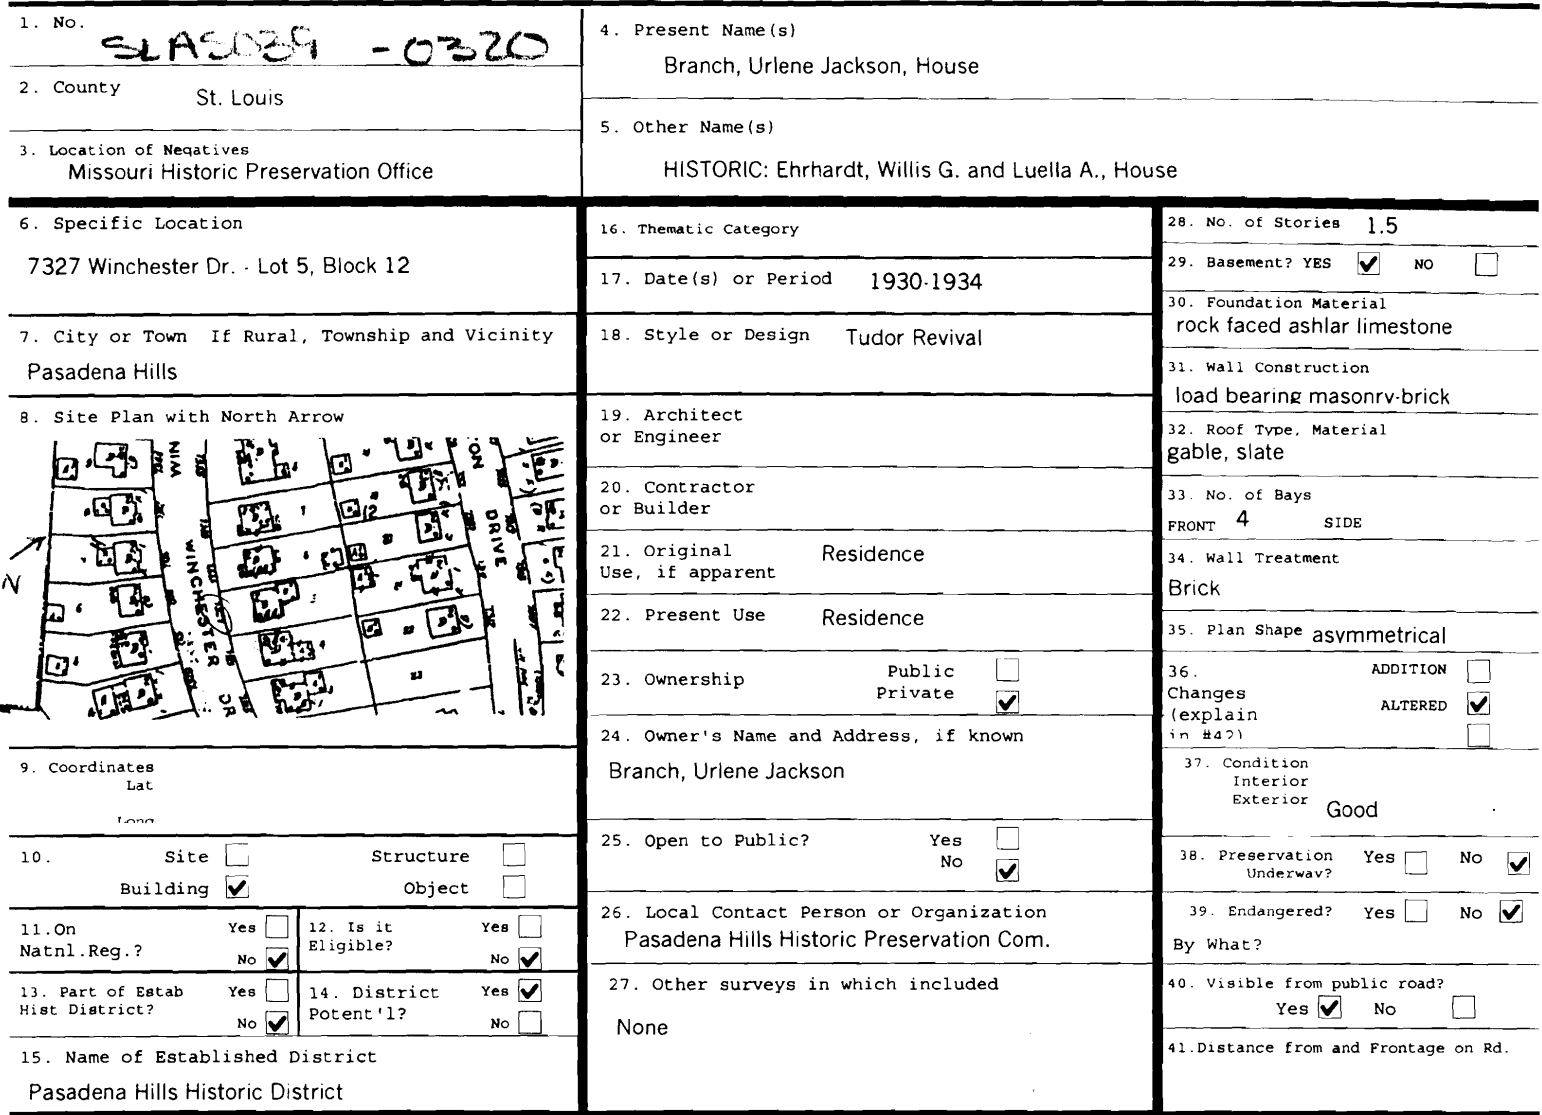 1. No.
SLAS039 -0320
2. County
St. Louis
3. Location of Negatives
Missouri Historic Preservation Office
4. Present Name(s)
Branch, Urlene Jackson, House
5. Other Name(s)
HISTORIC: Ehrhardt, Willis G. and Luella A., House
6. Specific Location
7327 Winchester Dr. - Lot 5, Block 12
7. City or Town If Rural, Township and Vicinity
Pasadena Hills
8. Site Plan with North Arrow
N
WIN
WINCHESTER DR
TON
DRIVE
12
23
9. Coordinates
Lat
Long
10. Site Structure
Building ✔ Object
11.On Yes
Natnl.Reg.? No ✔
12. Is it Yes
Eligible? No ✔
13. Part of Estab Yes
Hist District? No ✔
14. District Yes ✔
Potent'l? No
15. Name of Established District
Pasadena Hills Historic District
16. Thematic Category
17. Date(s) or Period 1930-1934
18. Style or Design Tudor Revival
19. Architect
or Engineer
20. Contractor
or Builder
21. Original Residence
Use, if apparent
22. Present Use Residence
23. Ownership Public
Private ✔
24. Owner's Name and Address, if known
Branch, Urlene Jackson
25. Open to Public? Yes
No ✔
26. Local Contact Person or Organization
Pasadena Hills Historic Preservation Com.
27. Other surveys in which included
None
28. No. of Stories 1.5
29. Basement? YES ✔ NO
30. Foundation Material
rock faced ashlar limestone
31. Wall Construction
load bearing masonry-brick
32. Roof Type, Material
gable, slate
33. No. of Bays
FRONT 4 SIDE
34. Wall Treatment
Brick
35. Plan Shape asymmetrical
36. ADDITION
Changes
(explain ALTERED ✔
in #42)
37. Condition
Interior
Exterior Good
38. Preservation Yes No ✔
Underway?
39. Endangered? Yes No ✔
By What?
40. Visible from public road?
Yes ✔ No
41.Distance from and Frontage on Rd.